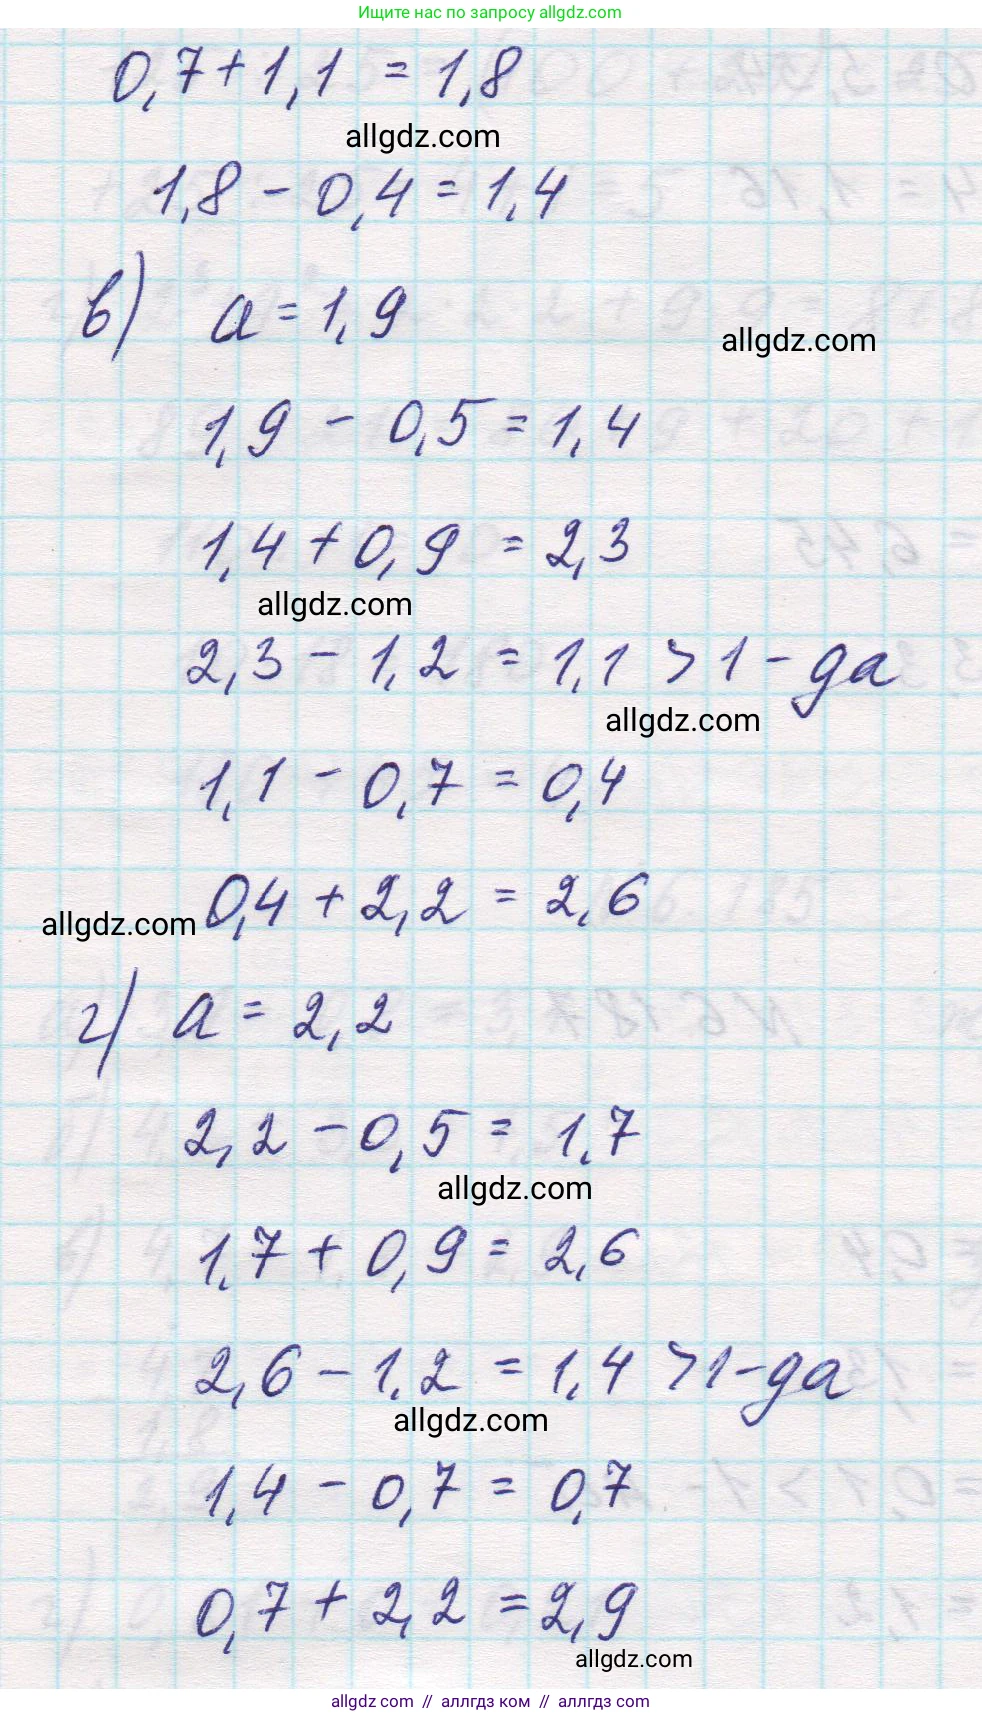 Ищите нас по запросу allgdz.com
0,7 + 1,1 = 1,8
allgdz.com
1,8 - 0,4 = 1,4
в) a = 1,9
allgdz.com
1,9 - 0,5 = 1,4
1,4 + 0,9 = 2,3
allgdz.com
2,3 - 1,2 = 1,1 > 1 - да
allgdz.com
1,1 - 0,7 = 0,4
0,4 + 2,2 = 2,6
allgdz.com
г) a = 2,2
2,2 - 0,5 = 1,7
allgdz.com
1,7 + 0,9 = 2,6
2,6 - 1,2 = 1,4 > 1 - да
allgdz.com
1,4 - 0,7 = 0,7
0,7 + 2,2 = 2,9
allgdz.com
allgdz.com // аллгдз ком // allgdz.com